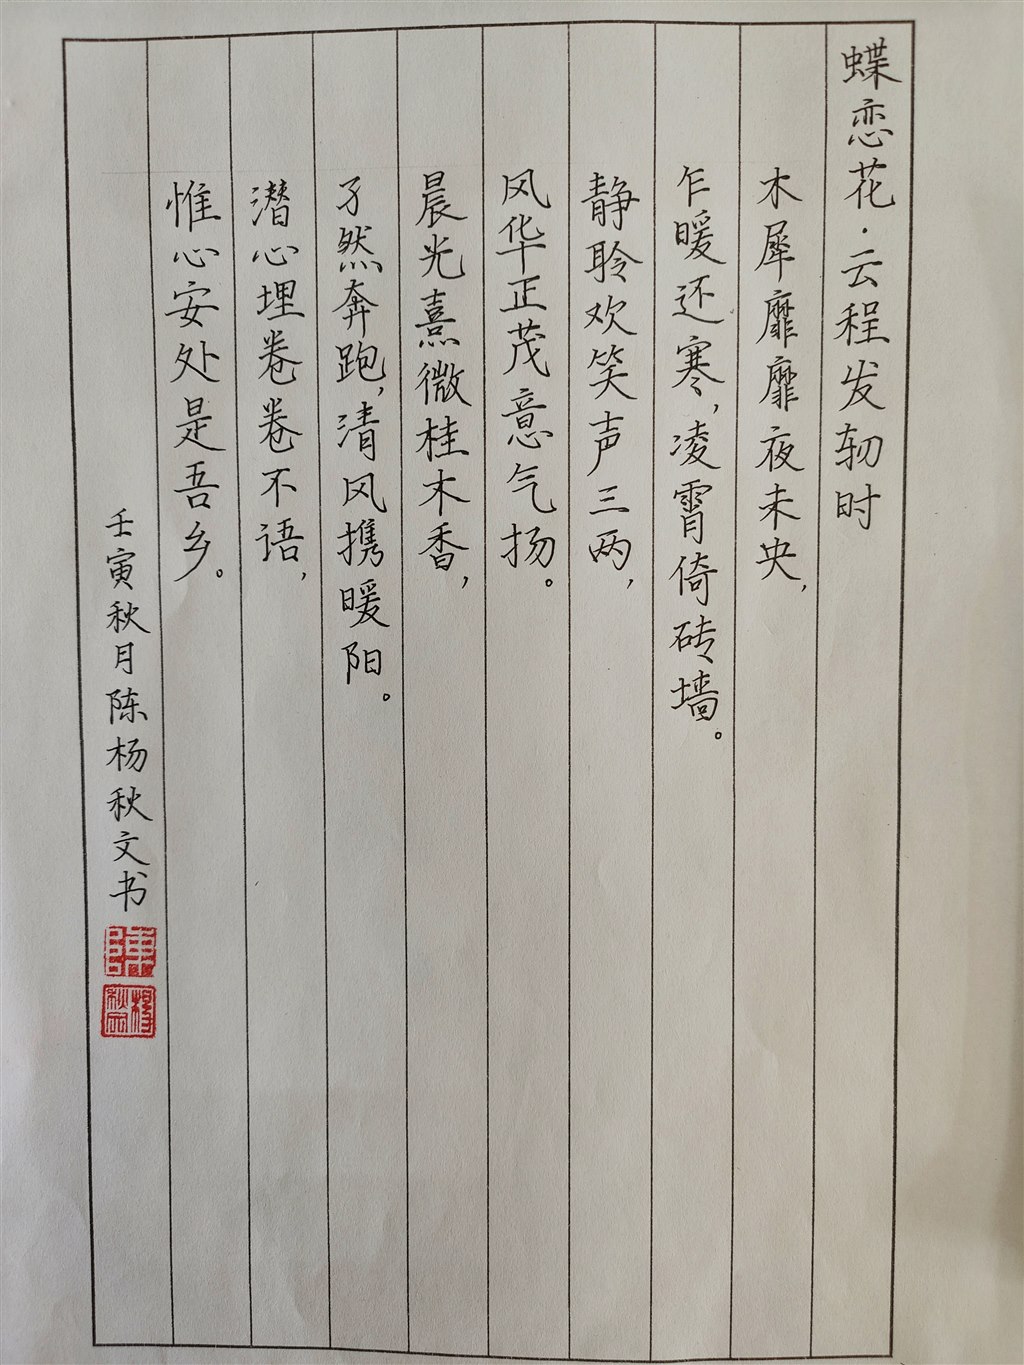 蝶恋花·云程发轫时
木犀靡靡夜未央，
乍暖还寒，凌霄倚砖墙。
静聆欢笑声三两，
风华正茂意气扬。
晨光熹微桂木香，
孑然奔跑，清风携暖阳。
潜心埋卷卷不语，
惟心安处是吾乡。
壬寅秋月陈杨秋文书
陈
杨秋文